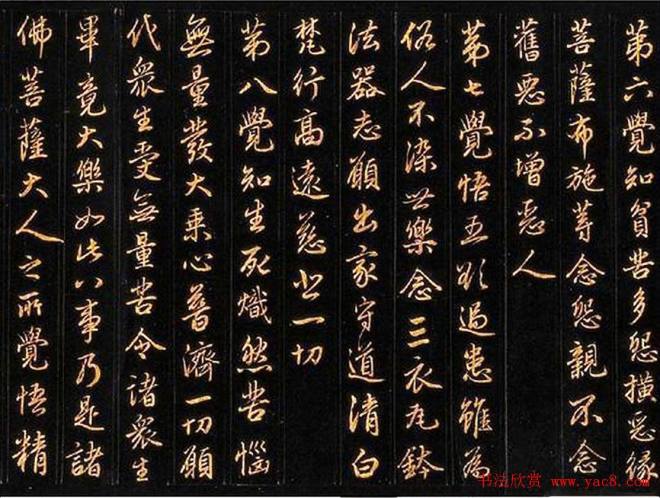 第六覺知貧苦多怨橫惡緣
菩薩布施等念怨親不念
舊惡不增惡人
第七覺悟五欲過患雖為
俗人不染世樂念三衣瓦鉢
法器志願出家守道清白
梵行高遠慈悲一切
第八覺知生死熾然苦惱
無量發大乘心普濟一切願
代眾生受無量苦令諸眾生
畢竟大樂如此八事乃是諸
佛菩薩大人之所覺悟精
书法欣赏 www.yac8.com